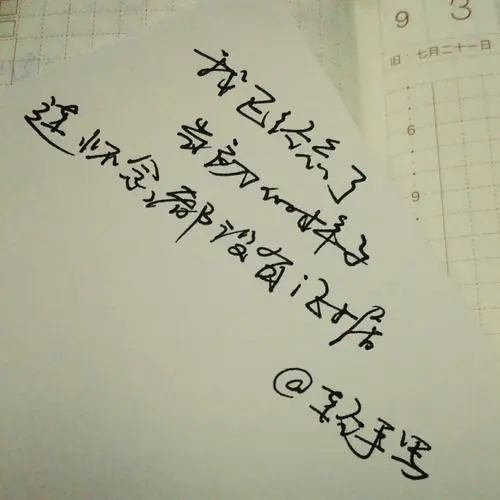 9 3
旧 七月二十一日
6
9
我已经忘了
当初的样子
连怀念都没有证据
@ 手写